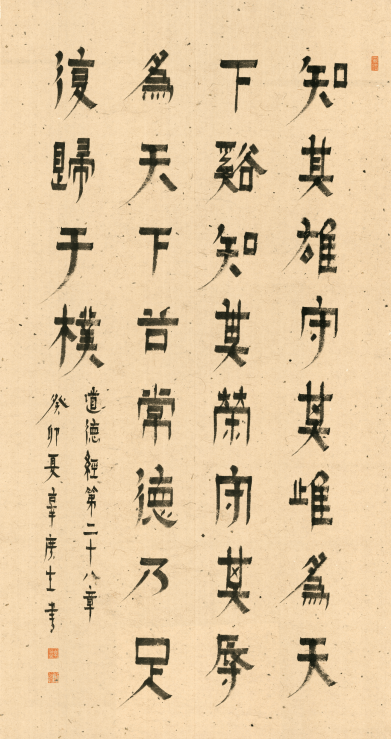 知其雄守其雌為天
下谿知其榮守其辱
為天下谷常德乃足
復歸于樸
道德經第二十八章
癸卯夏士書